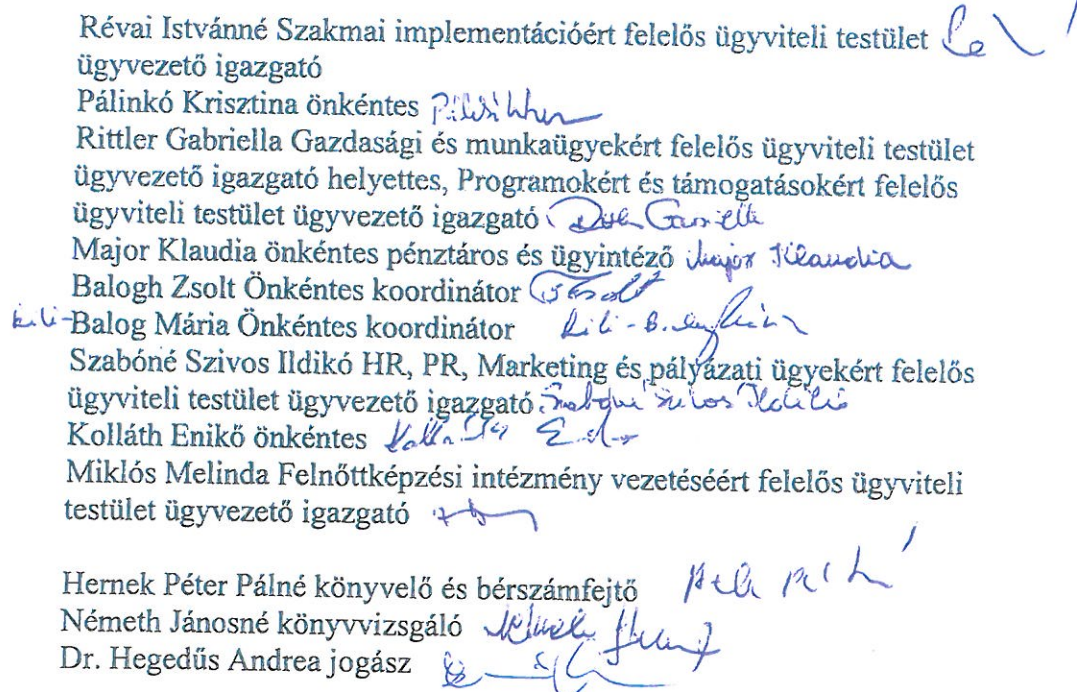 Révai Istvánné Szakmai implementációért felelős ügyviteli testület
ügyvezető igazgató
Pálinkó Krisztina önkéntes
Rittler Gabriella Gazdasági és munkaügyekért felelős ügyviteli testület
ügyvezető igazgató helyettes, Programokért és támogatásokért felelős
ügyviteli testület ügyvezető igazgató
Major Klaudia önkéntes pénztáros és ügyintéző Major Klaudia
Balogh Zsolt Önkéntes koordinátor
Kili-Balog Mária Önkéntes koordinátor
Szabóné Szivos Ildikó HR, PR, Marketing és pályázati ügyekért felelős
ügyviteli testület ügyvezető igazgató
Kolláth Enikő önkéntes
Miklós Melinda Felnőttképzési intézmény vezetéséért felelős ügyviteli
testület ügyvezető igazgató
Hernek Péter Pálné könyvelő és bérszámfejtő
Németh Jánosné könyvvizsgáló
Dr. Hegedűs Andrea jogász